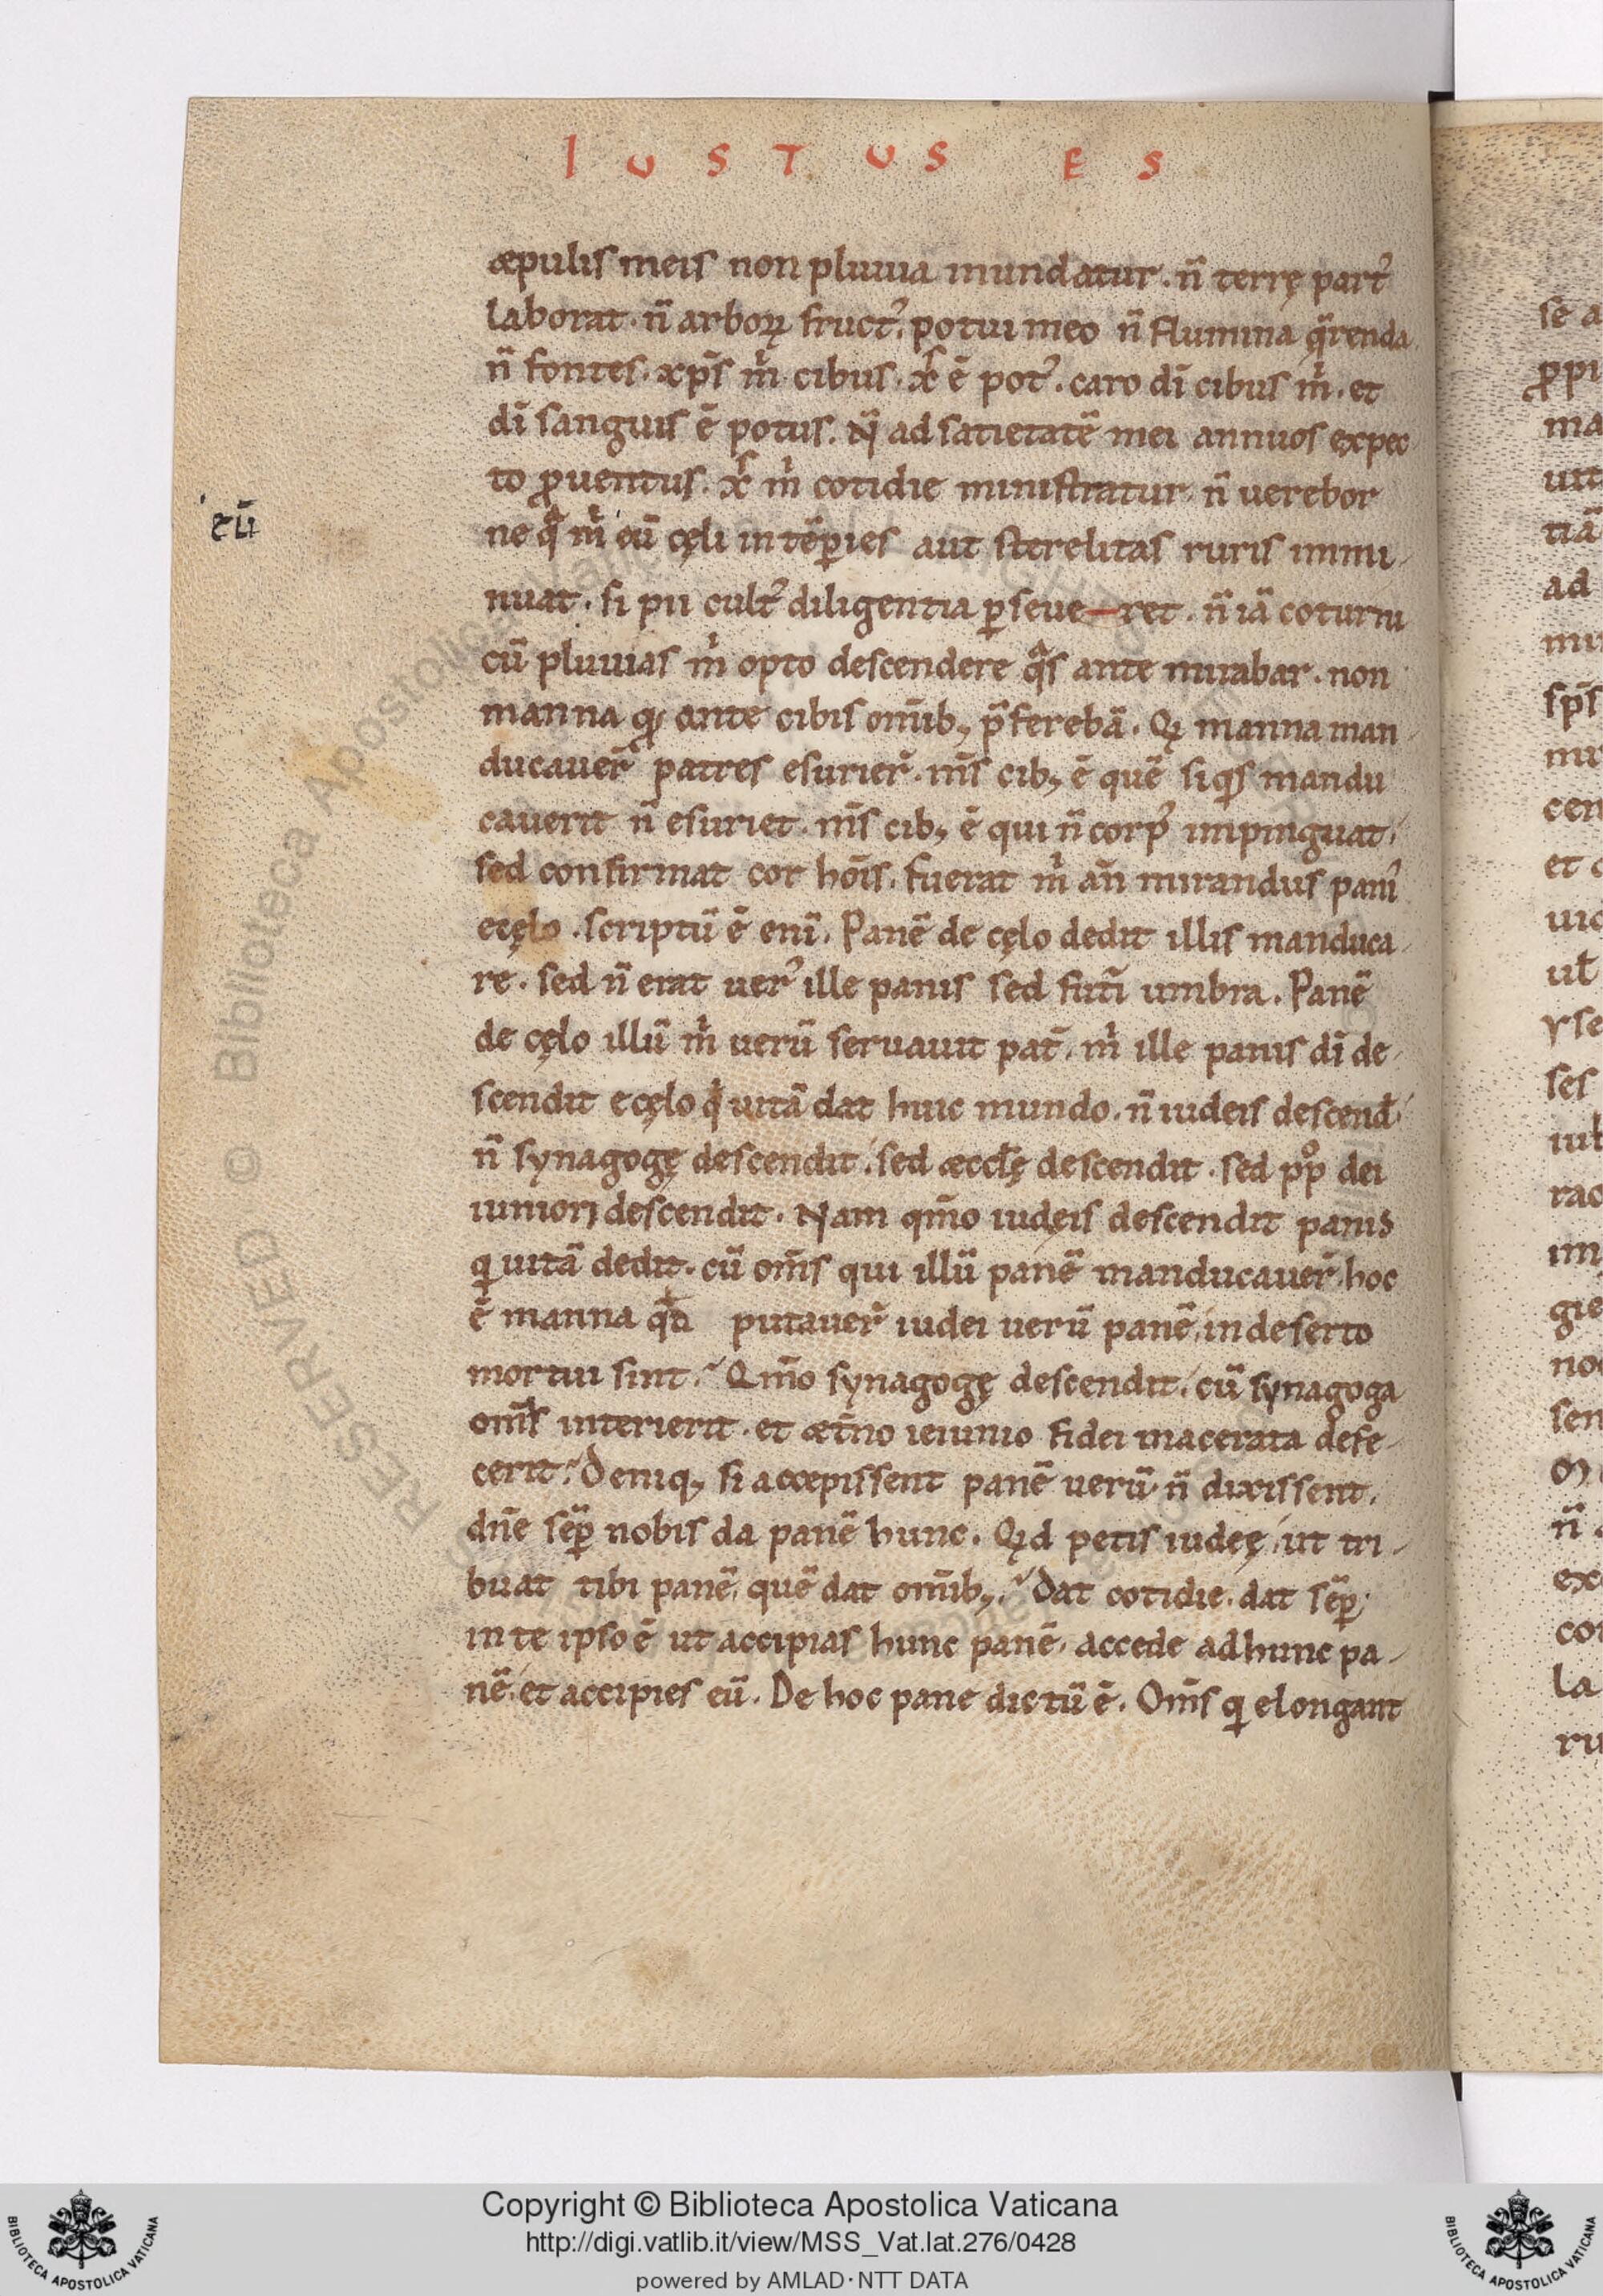 IUSTUS ES
æpulis meis non pluuia mundatur. n̄ terrę partꝰ
laborat. n̄ arborꝝ fructꝰ. potui meo n̄ flumina q̄renda
n̄ fontes. xp̄s m̍ cibus. xp̄s ē potꝰ. caro dī cibus m̍. et
dī sanguis ē potus. Nͣ ad satietatē mei annuos expec
to ꝓuentus. xp̄s m̍ cotidie ministratur. n̄ uerebor
eū
ne qͣ m̍ eū cęli intēꝑies aut sterelitas ruris inmi-
nuat. si pii cultꝰ diligentia ꝑseue-ret. n̄ iā coturni
cū pluuias m̍ opto descendere qͣs ante mirabar. non
manna qđ ante cibis omīb; p̄ferebā. Qꝛ manna man-
ducauer̄ patres esurier̄. m̄s cib; ē quē siqͥs mandu
cauerit n̄ esuriet. m̄s cib; ē qui n̄ corpꝰ impinguat.
sed confirmat cor hōis. fuerat m̍ an̄ mirandus panis
e cęlo. scriptū ē eni. Panē de cęlo dedit illis manduca-
re. sed n̄ erat uerꝰ ille panis sed futī umbra. Panē
de cęlo illū m̍ uerū seruauit pat̄. m̍ ille panis dī de-
scendit e cęlo qͥ uitā dat huic mundo. n̄ iudeis descend̄.
n̄ synagogę descendit. sed æccłę descendit. sed pp̊ dei
iuniori descendit. Nam qm̄o iudęis descendit panis
q uitā dedit. cū om̄s qui illū panē manducauer̄. hoc
ē manna qđ putauer̄ iudei uerū panē, in deserto
mortui sint. Qm̄o synagogę descendit. cū synagoga
om̄is interierit. et æt̄no ieiunio fidei macerata defe-
cerit. Deniq; si accæpissent panē uerū n̄ dixissent.
dn̄e sēꝑ nobis da panē hunc. Qd petis iudeę, ut tri-
buat tibi panē, quē dat om̄ib;. Dat cotidie. dat sēꝑ.
in te ipso ē ut accipias hunc panē. accede ad hunc pa-
nē. et accipies eū. De hoc pane dictū ē. Om̄s q elongant
Copyright © Biblioteca Apostolica Vaticana
http://digi.vatlib.it/view/MSS_Vat.lat.276/0428
powered by AMLAD·NTT DATA
BIBLIOTECA APOSTOLICA VATICANA
BIBLIOTECA APOSTOLICA VATICANA